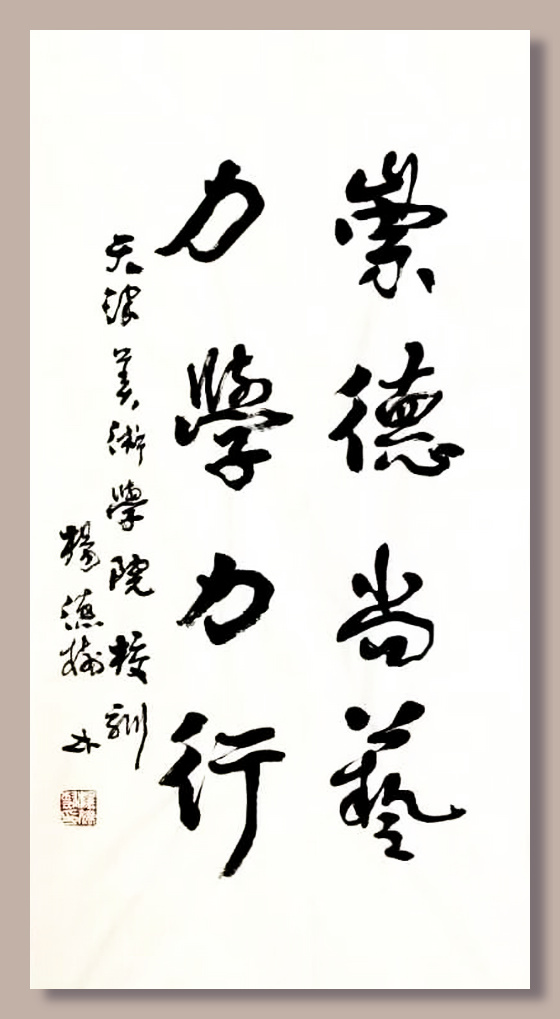 崇德尚藝
力學力行
天津美術學院校訓
楊德樹书